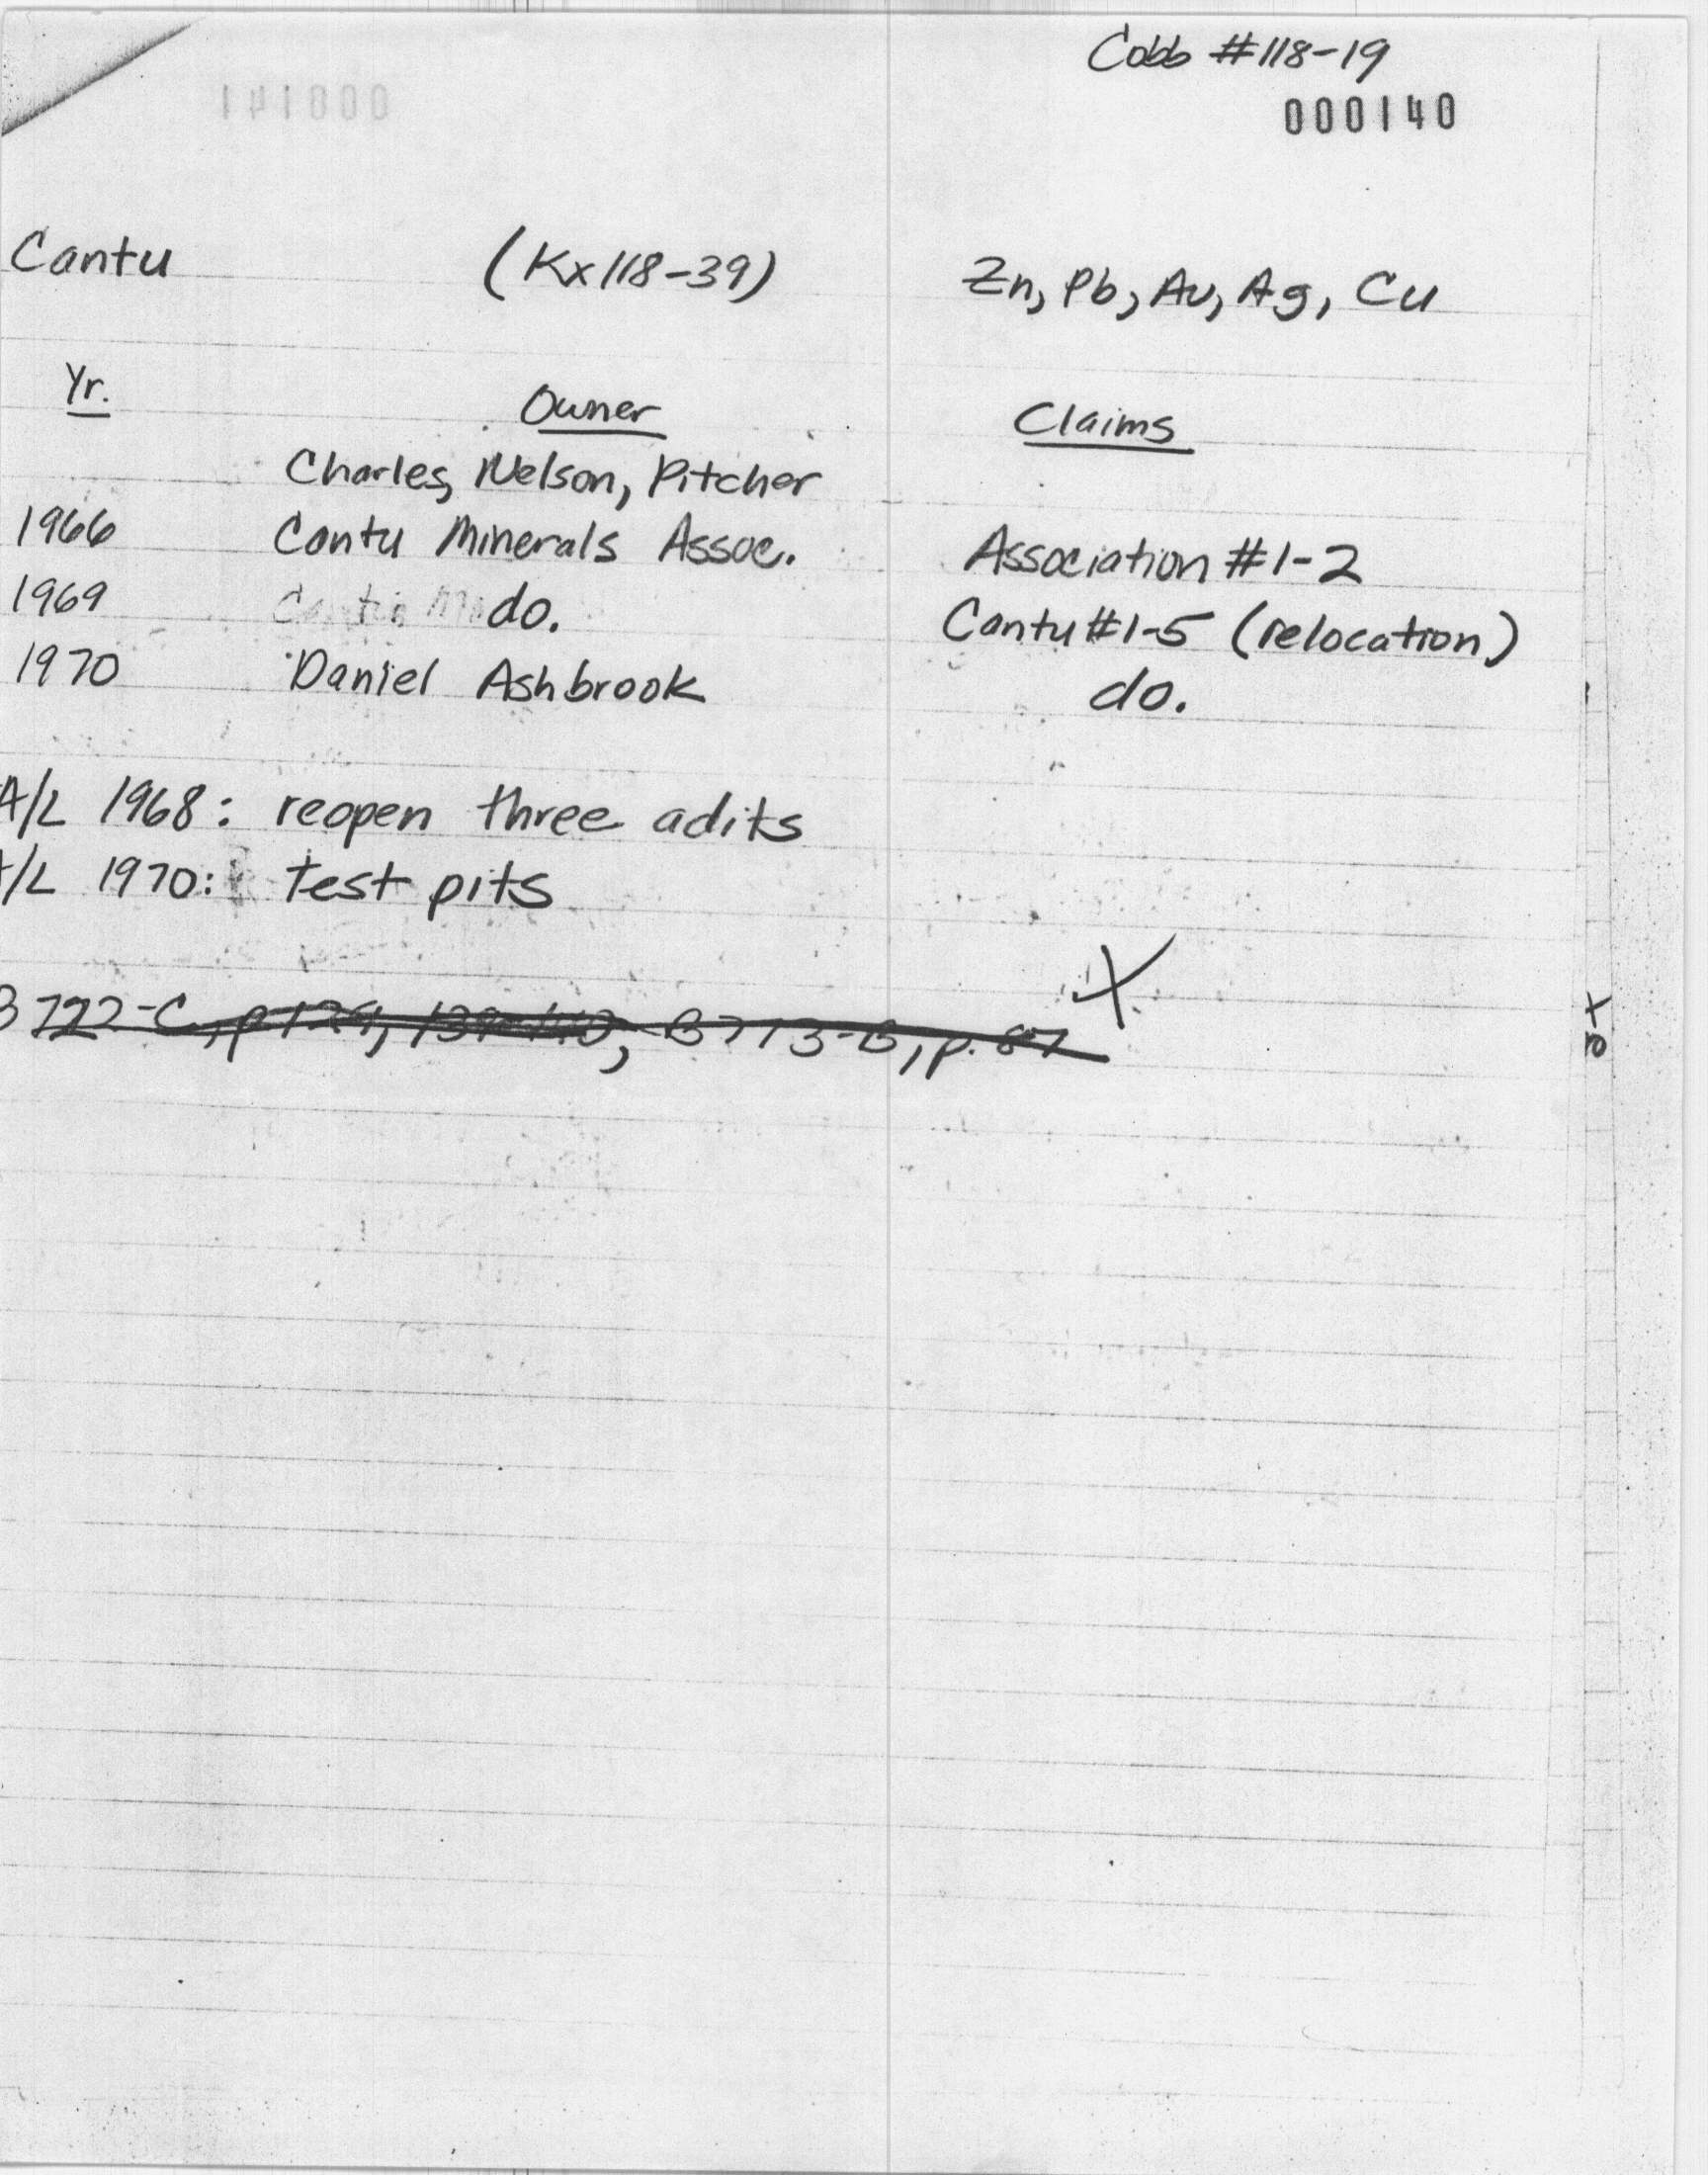 Cobb #118-19
000140
Cantu (Kx118-39) Zn, Pb, Au, Ag, Cu
Yr. Owner Claims
Charles, Nelson, Pitcher
1966 Cantu Minerals Assoc. Association #1-2
1969 do. Cantu #1-5 (relocation)
1970 Daniel Ashbrook do.
A/L 1968: reopen three adits
/L 1970: test pits
B 722-C, p 129, B713-B, p. 87 X